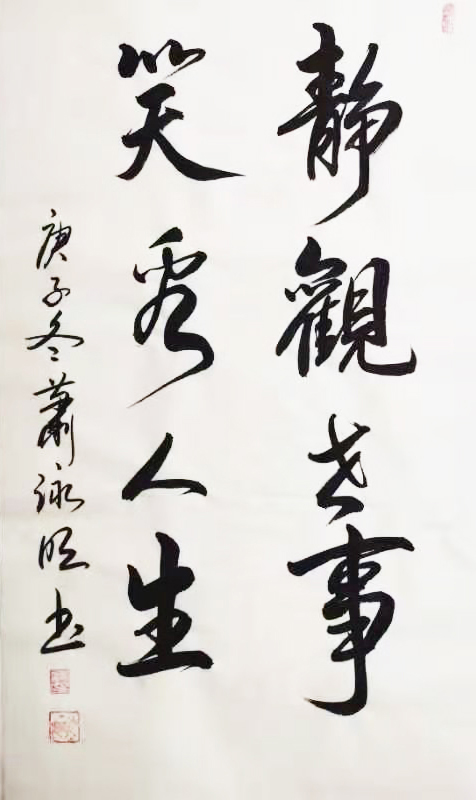 靜觀世事
笑看人生
庚子冬蕭詠明書